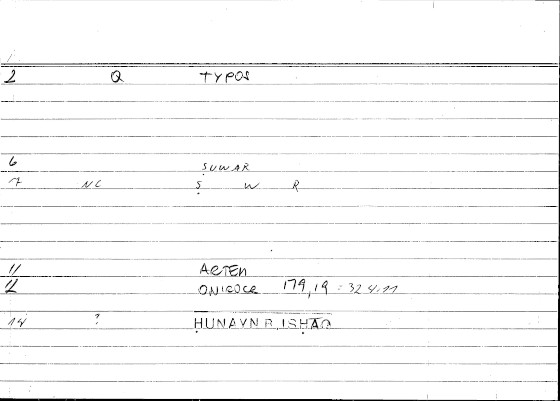 2 Q TYPOS
6 ṢUWAR
7 NC Ṣ W R
11 ARTEN
12 ONIROCR 179,19 = 324.11
14 ? ḤUNAYN B. ISḤĀQ